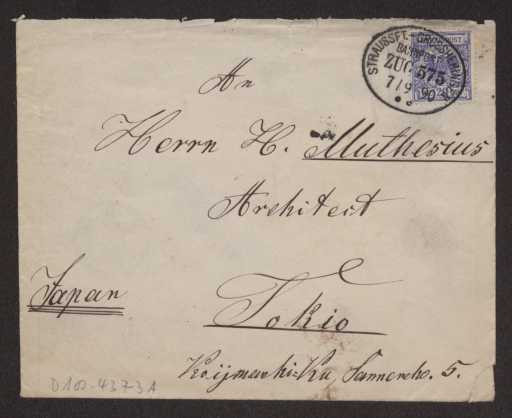 STRAUSSFT.-GROSSHERINGEN
BAHNPOST
ZUG 575
7/9 90
An
Herrn H. Muthesius
Architect
Japan
Tokio
Kojimachi-Ku, Sannencho. 5.
D 102-4373 A